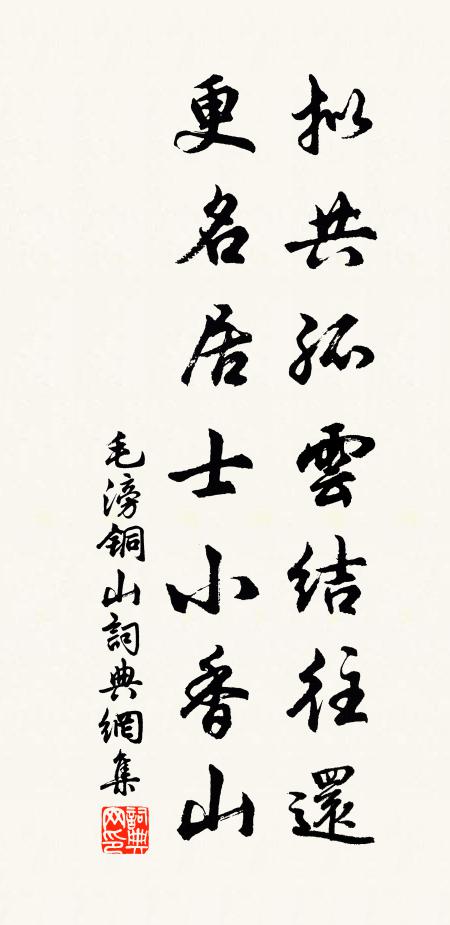 拟共孤雲結往還
更名居士小香山
毛滂銅山詞典網集
詞典網印